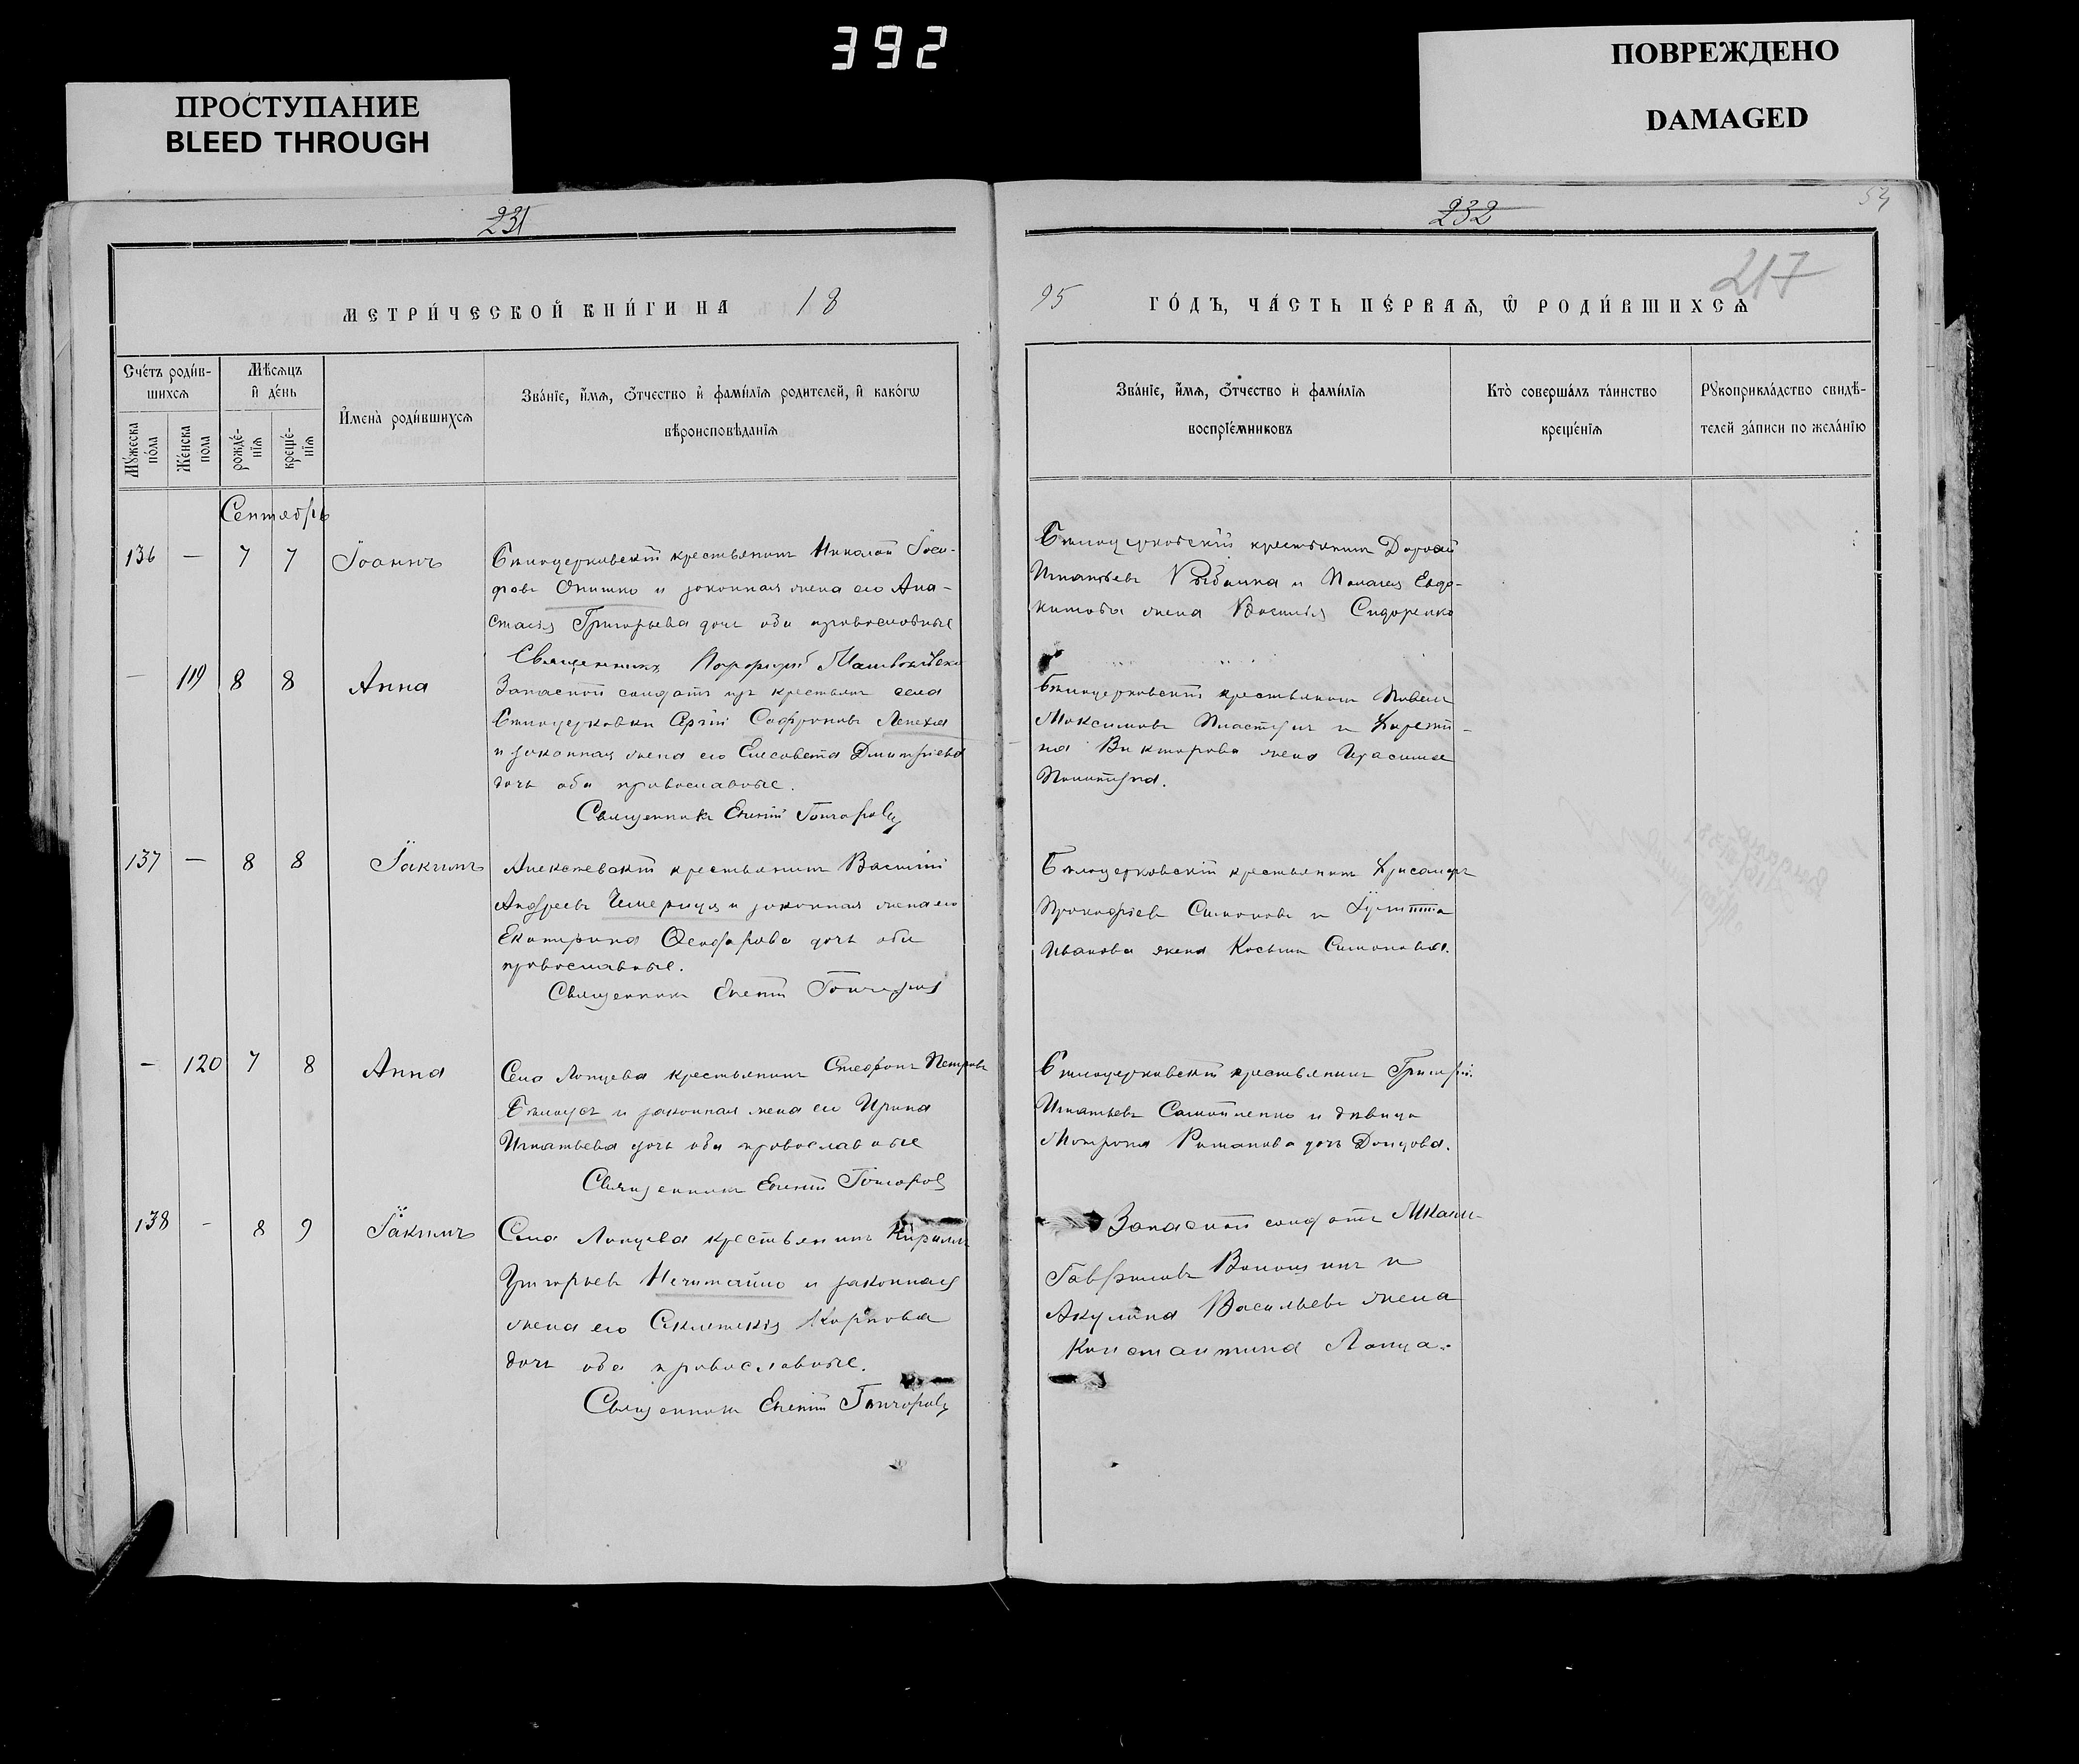 392
ПРОСТУПАНИЕ
BLEED THROUGH
ПОВРЕЖДЕНО
DAMAGED
231
232
54
217
МЕТРИ́ЧЕСКОЙ КНИ́ГИ НА 18
95 ГО́ДЪ, ЧА́СТЬ ПЕ́РВАѦ, Ѡ РОДИ́ВШИХСѦ
Сче́тъ роди́в-
шихсѧ
Мꙋ́жеска
по́ла
Же́нска
пола
Мѣ́сѧцъ
и҆ де́нь
рожде́-
нїѧ
креще́-
нїѧ
И҆мена̀ роди́вшихсѧ
Зва́нїе, и҆́мѧ, ѻ҆́тчество и҆ фами́лїѧ родителей, и҆ како́гѡ
вѣроисповѣ́данїѧ
Зва́нїе, и҆́мѧ, ѻ҆́тчество и҆ фами́лїѧ
воспрїе́мниковъ
Кто̀ соверша́лъ та́инство
креще́нїѧ
Рꙋкоприкла́дство свидѣ́-
телей за́писи по жела́нїю
Сентябрь
136 — 7 7 Іоаннъ
Бѣлоцерковскій крестьянинъ Николай Іоси-
фовъ Онишко и законная жена его Ана-
стасія Григорьева дочь оба православные
Священникъ
Бѣлоцерковскій крестьянинъ Дорофей
Игнатьевъ Рыбалка и Пелагея Евдо-
кимова жена Василія Сидоренко
— 119 8 8 Анна
Запасной солдатъ изъ крестьянъ села
Бѣлоцерковки Сергій Софроновъ Лепеха
и законная жена его Елисавета Димитріева
дочь оба православные.
Священникъ Евгеній Гончаровъ
Бѣлоцерковскій крестьянинъ Павелъ
Максимовъ и
на Викторова жена Герасима
137 — 8 8 Іакимъ
Алексѣевскій крестьянинъ Василій
Андреевъ Чемерица и законная жена его
Екатерина Ѳеодорова дочь оба
православные.
Священникъ Евгеній Гончаровъ
Бѣлоцерковскій крестьянинъ Хрисанфъ
Прокофіевъ Симоновъ и
Иванова жена Косьмы Симонова.
— 120 7 8 Анна
Села Лопцева крестьянинъ Стефанъ Петровъ
Бѣлоусъ и законная жена его Ирина
Игнатьева дочь оба православные
Священникъ Евгеній Гончаровъ
Бѣлоцерковскій крестьянинъ Григорій
Игнатьевъ Самойленко и дѣвица
Матрона Романова дочь Донцова.
138 - 8 9 Іакимъ
Села Лопцева крестьянинъ Кириллъ
Григорьевъ Нечитайло и законная
жена его Карпова
дочь оба православные.
Священникъ Евгеній Гончаровъ
Запасной солдатъ
Гавриловъ Волошинъ и
Акулина Васильева жена
Константина Лопца.